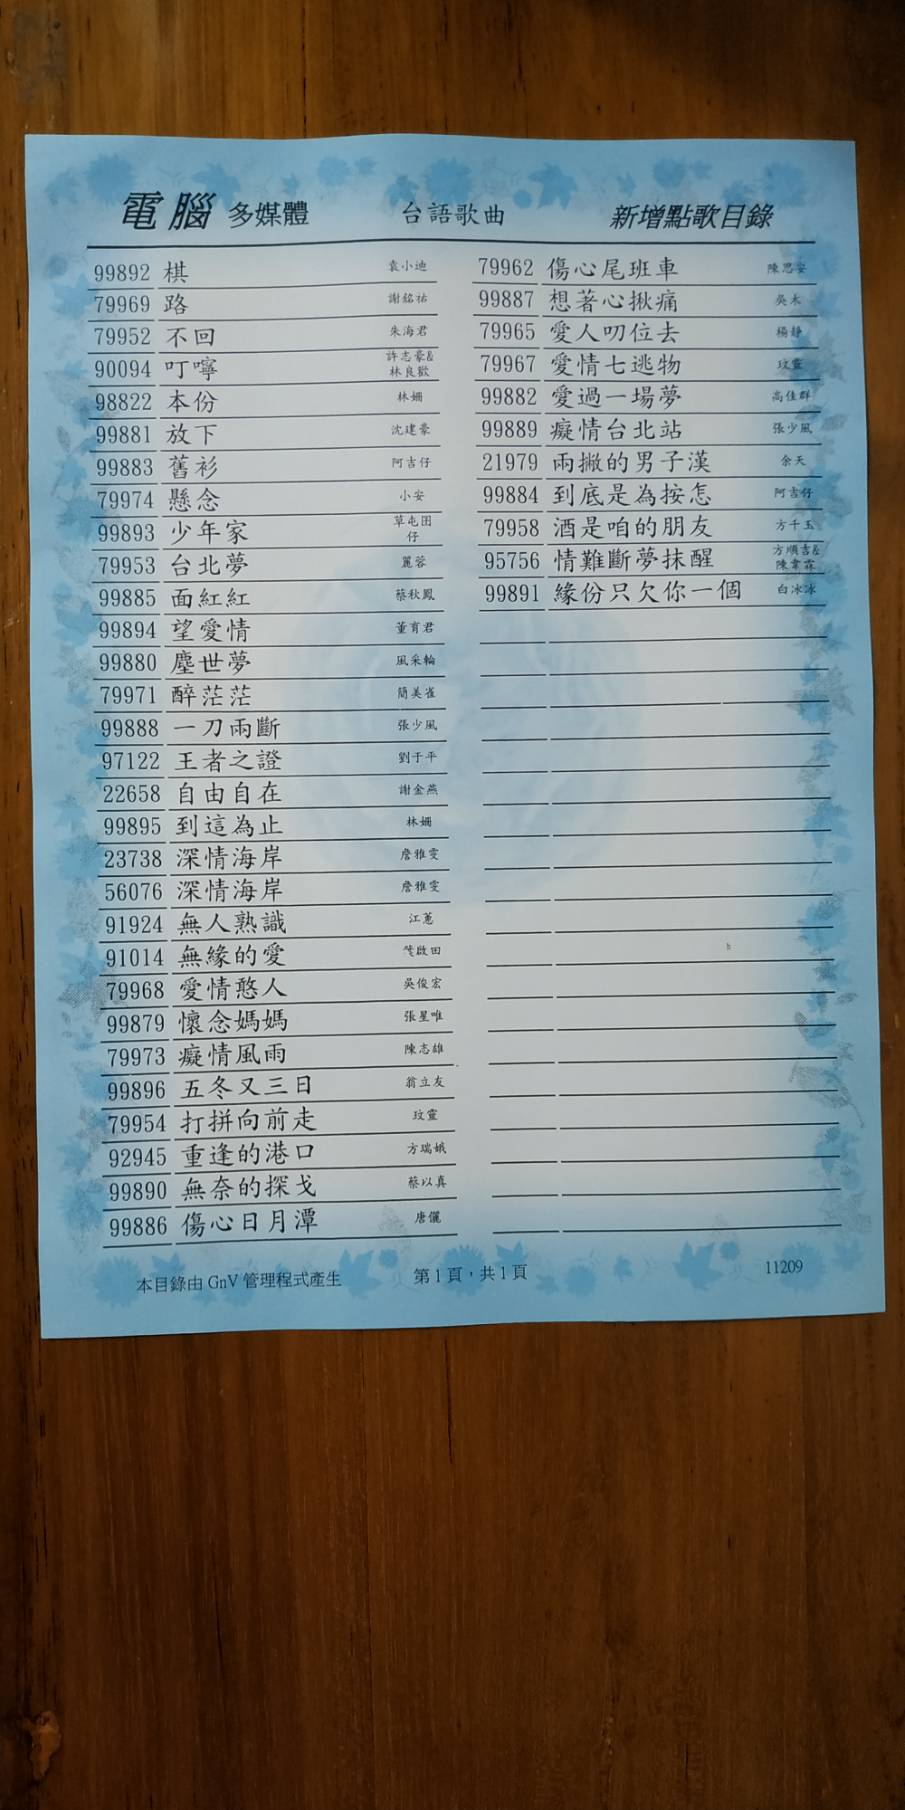 電腦 多媒體 台語歌曲 新增點歌目錄
99892 棋 袁小迪
79969 路 謝銘祐
79952 不回 朱海君
90094 叮嚀 許志豪& 林良歡
98822 本份 林姍
99881 放下 沈建豪
99883 舊衫 阿吉仔
79974 懸念 小安
99893 少年家 草屯囝仔
79953 台北夢 麗蓉
99885 面紅紅 蔡秋鳳
99894 望愛情 董育君
99880 塵世夢 風采輪
79971 醉茫茫 簡美雀
99888 一刀兩斷 張少風
97122 王者之證 劉于平
22658 自由自在 謝金燕
99895 到這為止 林姍
23738 深情海岸 詹雅雯
56076 深情海岸 詹雅雯
91924 無人熟識 江蕙
91014 無緣的愛 啟田
79968 愛情憨人 吳俊宏
99879 懷念媽媽 張星唯
79973 癡情風雨 陳志雄
99896 五冬又三日 翁立友
79954 打拼向前走 玟靈
92945 重逢的港口 方瑞娥
99890 無奈的探戈 蔡以真
99886 傷心日月潭 唐儷
79962 傷心尾班車 陳思安
99887 想著心揪痛 吳木
79965 愛人叨位去 楊靜
79967 愛情七逃物 玟靈
99882 愛過一場夢 高佳群
99889 癡情台北站 張少風
21979 兩撇的男子漢 余天
99884 到底是為按怎 阿吉仔
79958 酒是咱的朋友 方千玉
95756 情難斷夢抹醒 方順吉& 陳韋霖
99891 緣份只欠你一個 白冰冰
本目錄由 GnV 管理程式產生 第 1 頁，共 1 頁 11209